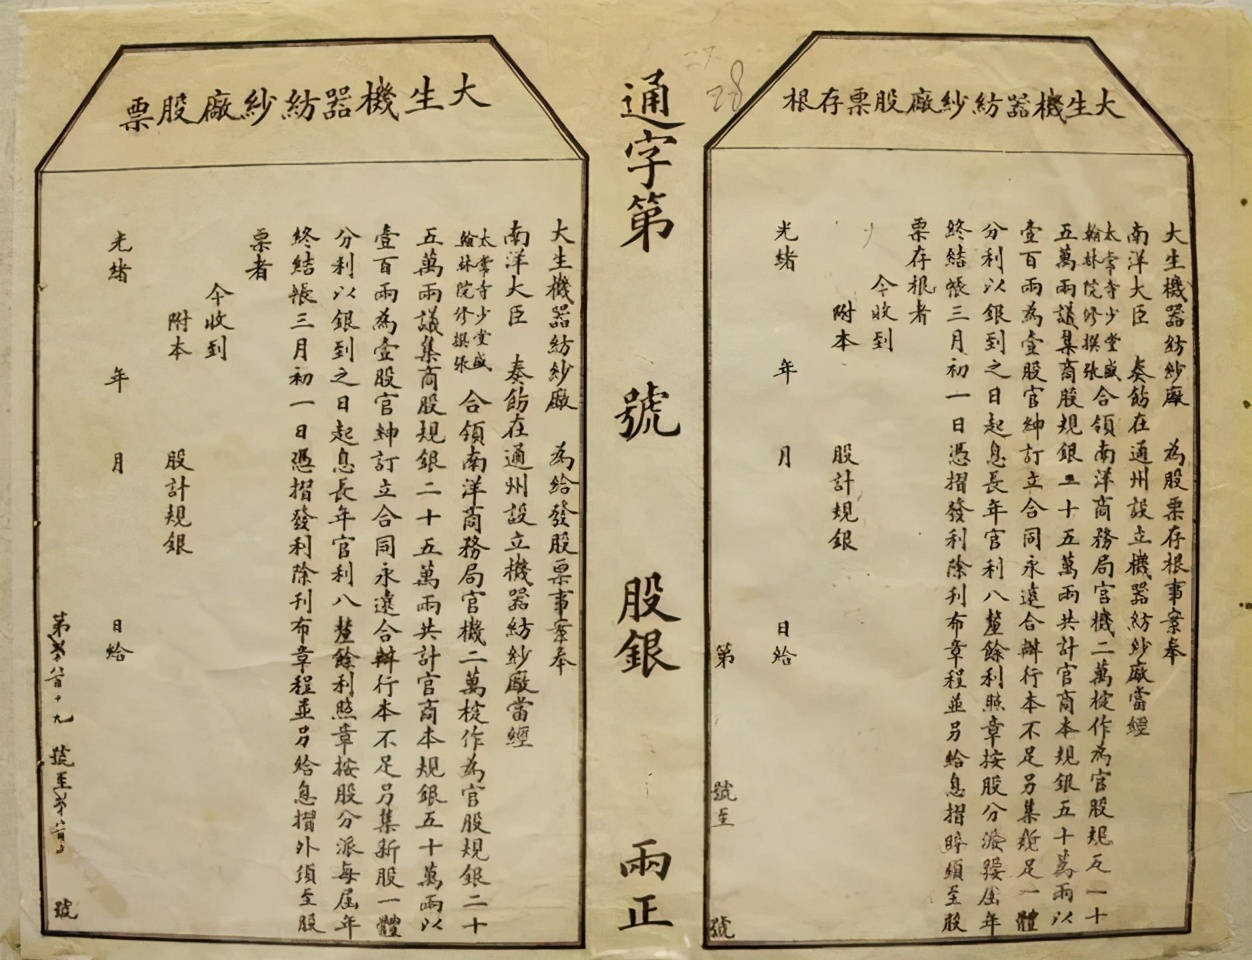 大生機器紡紗廠股票存根
大生機器紡紗廠 為股票存根事案奉
南洋大臣 奏飭在通州設立機器紡紗廠當經
太常寺少堂盛
翰林院修撰張 合領南洋商務局官機二萬椗作為官股規銀二十
五萬兩議集商股規銀二十五萬兩共計官商本規銀五十萬兩以
壹百兩為壹股官紳訂立合同永遠合辦行本不足另集新股一體
分利以銀到之日起息長年官利八釐餘利照章按股分派每屆年
終結帳三月初一日憑摺發利除刊布章程並另給息摺外須至股
票存根者
今收到
附本 股計規銀
光緒 年 月 日給
第 號至 號
28
通字第 號 股銀 兩正
大生機器紡紗廠股票
大生機器紡紗廠 為給發股票事案奉
南洋大臣 奏飭在通州設立機器紡紗廠當經
太常寺少堂盛
翰林院修撰張 合領南洋商務局官機二萬椗作為官股規銀二十
五萬兩議集商股規銀二十五萬兩共計官商本規銀五十萬兩以
壹百兩為壹股官紳訂立合同永遠合辦行本不足另集新股一體
分利以銀到之日起息長年官利八釐餘利照章按股分派每屆年
終結帳三月初一日憑摺發利除刊布章程並另給息摺外須至股
票者
今收到
附本 股計規銀
光緒 年 月 日給
第 號至 號